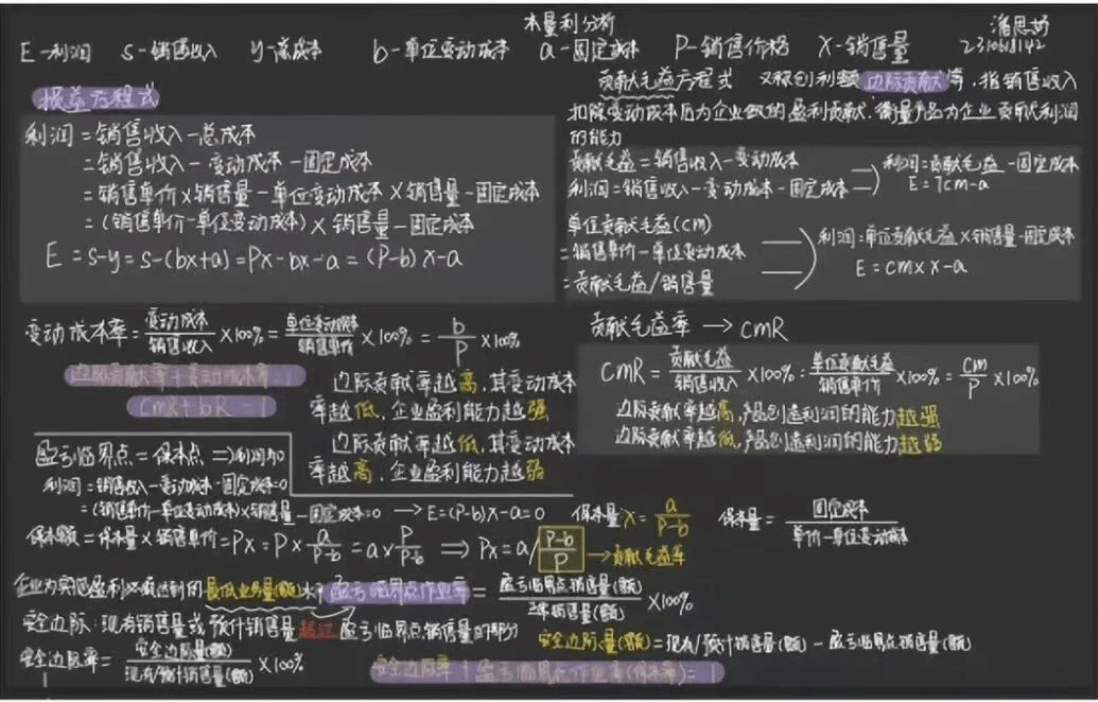 本量利分析
潘思妤
2310618142
E-利润 S-销售收入 y-总成本 b-单位变动成本 a-固定成本 P-销售价格 X-销售量
损益方程式
利润=销售收入-总成本
=销售收入-变动成本-固定成本
=销售单价×销售量-单位变动成本×销售量-固定成本
=(销售单价-单位变动成本)×销售量-固定成本
E=S-y=S-(bx+a)=Px-bx-a=(P-b)x-a
贡献毛益方程式 又称创利额 边际贡献等,指销售收入
扣除变动成本后为企业做的盈利贡献,衡量产品为企业贡献利润
的能力
贡献毛益=销售收入-变动成本
利润=销售收入-变动成本-固定成本
利润=贡献毛益-固定成本
E=Tcm-a
单位贡献毛益(CM)
=销售单价-单位变动成本
=贡献毛益/销售量
利润=单位贡献毛益×销售量-固定成本
E=cm×x-a
变动成本率=变动成本/销售收入×100%=单位变动成本/销售单价×100%=b/P×100%
边际贡献率+变动成本率=1
CMR+bR=1
边际贡献率越高,其变动成本
率越低,企业盈利能力越强
边际贡献率越低,其变动成本
率越高,企业盈利能力越弱
贡献毛益率→CMR
CMR=贡献毛益/销售收入×100%=单位贡献毛益/销售单价×100%=CM/P×100%
边际贡献率越高,产品创造利润的能力越强
边际贡献率越低,产品创造利润的能力越弱
盈亏临界点=保本点⇒利润为0
利润=销售收入-变动成本-固定成本=0
=(销售单价-单位变动成本)×销售量-固定成本=0→E=(P-b)x-a=0
保本量x=a/P-b 保本量=固定成本/单价-单位变动成本
保本额=保本量×销售单价=Px=P×a/P-b=a×P/P-b⇒Px=a/P-b/P→贡献毛益率
企业为实现盈利必须达到的最低业务量(额)水平 盈亏临界点作业率=盈亏临界点销售量(额)/正常销售量(额)×100%
安全边际:现有销售量或预计销售量超过盈亏临界点销售量的部分
安全边际量(额)=现有/预计销售量(额)-盈亏临界点销售量(额)
安全边际率=安全边际量(额)/现有/预计销售量(额)×100%
安全边际率+盈亏临界点作业率(保本率)=1